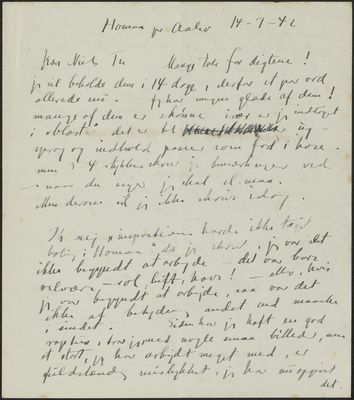 Homaa pr Aalsø 14-7-42
Kære Niels Th. Mange Tak for digtene!
jeg vil beholde dem i 14 dage, derfor et par ord
allerede nu. Jeg har megen glæde af dem!
mange af dem er skønne især er jeg indtaget
i det er
sprog og indhold passer som fod i hose.
men 3-4 stykker skrev jeg bemærkninger ved
- naar du siger jeg skal
Men derom vil jeg ikke skrive i dag.
Nej "inspirationen" havde ikke taget
bolig i Homaa da jeg skrev, jeg var det
ikke begyndt at arbejde - det var bare
velvære, - sol, luft, hav! - eller, hvis
jeg var begyndt at arbejde, saa var det
ikke af betydning andet ved maaske
i sindet. Siden har jeg haft en god
, med nogle smaa billeder, men
et stort, jeg har arbejdet meget med, er
fuldstændig mislykket, jeg har nu opgivet
det.